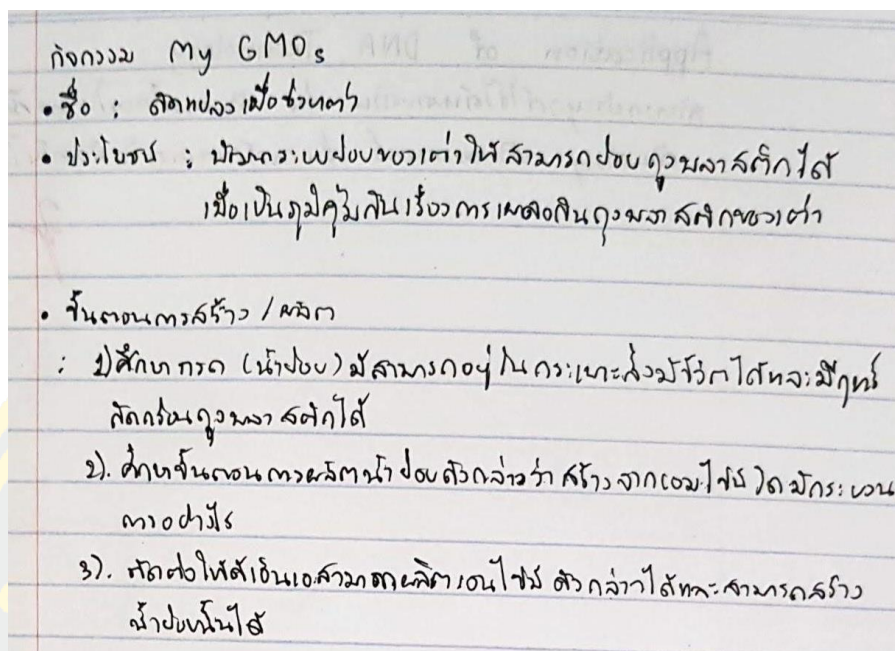 กิจกรรม My GMOs
• ชื่อ : ดัดแปลงเพื่อช่วยเต่า
• ประโยชน์ : พัฒนาระบบย่อยของเต่าให้สามารถย่อยถุงพลาสติกได้
เพื่อเป็นภูมิคุ้มกันเรื่องการเผลอกินถุงพลาสติกของเต่า
• ขั้นตอนการสร้าง / ผลิต
: 1) ศึกษากรด (น้ำย่อย) ที่สามารถอยู่ในกระเพาะสิ่งมีชีวิตได้และมีฤทธิ์
กัดกร่อนถุงพลาสติกได้
2). ศึกษาขั้นตอนการผลิตน้ำย่อยดังกล่าวว่าสร้างจากเอนไซม์ใด มีกระบวน
การอย่างไร
3). ตัดต่อให้ดีเอ็นเอสามารถผลิตเอนไซม์ดังกล่าวได้และสามารถสร้าง
น้ำย่อยนั้นได้